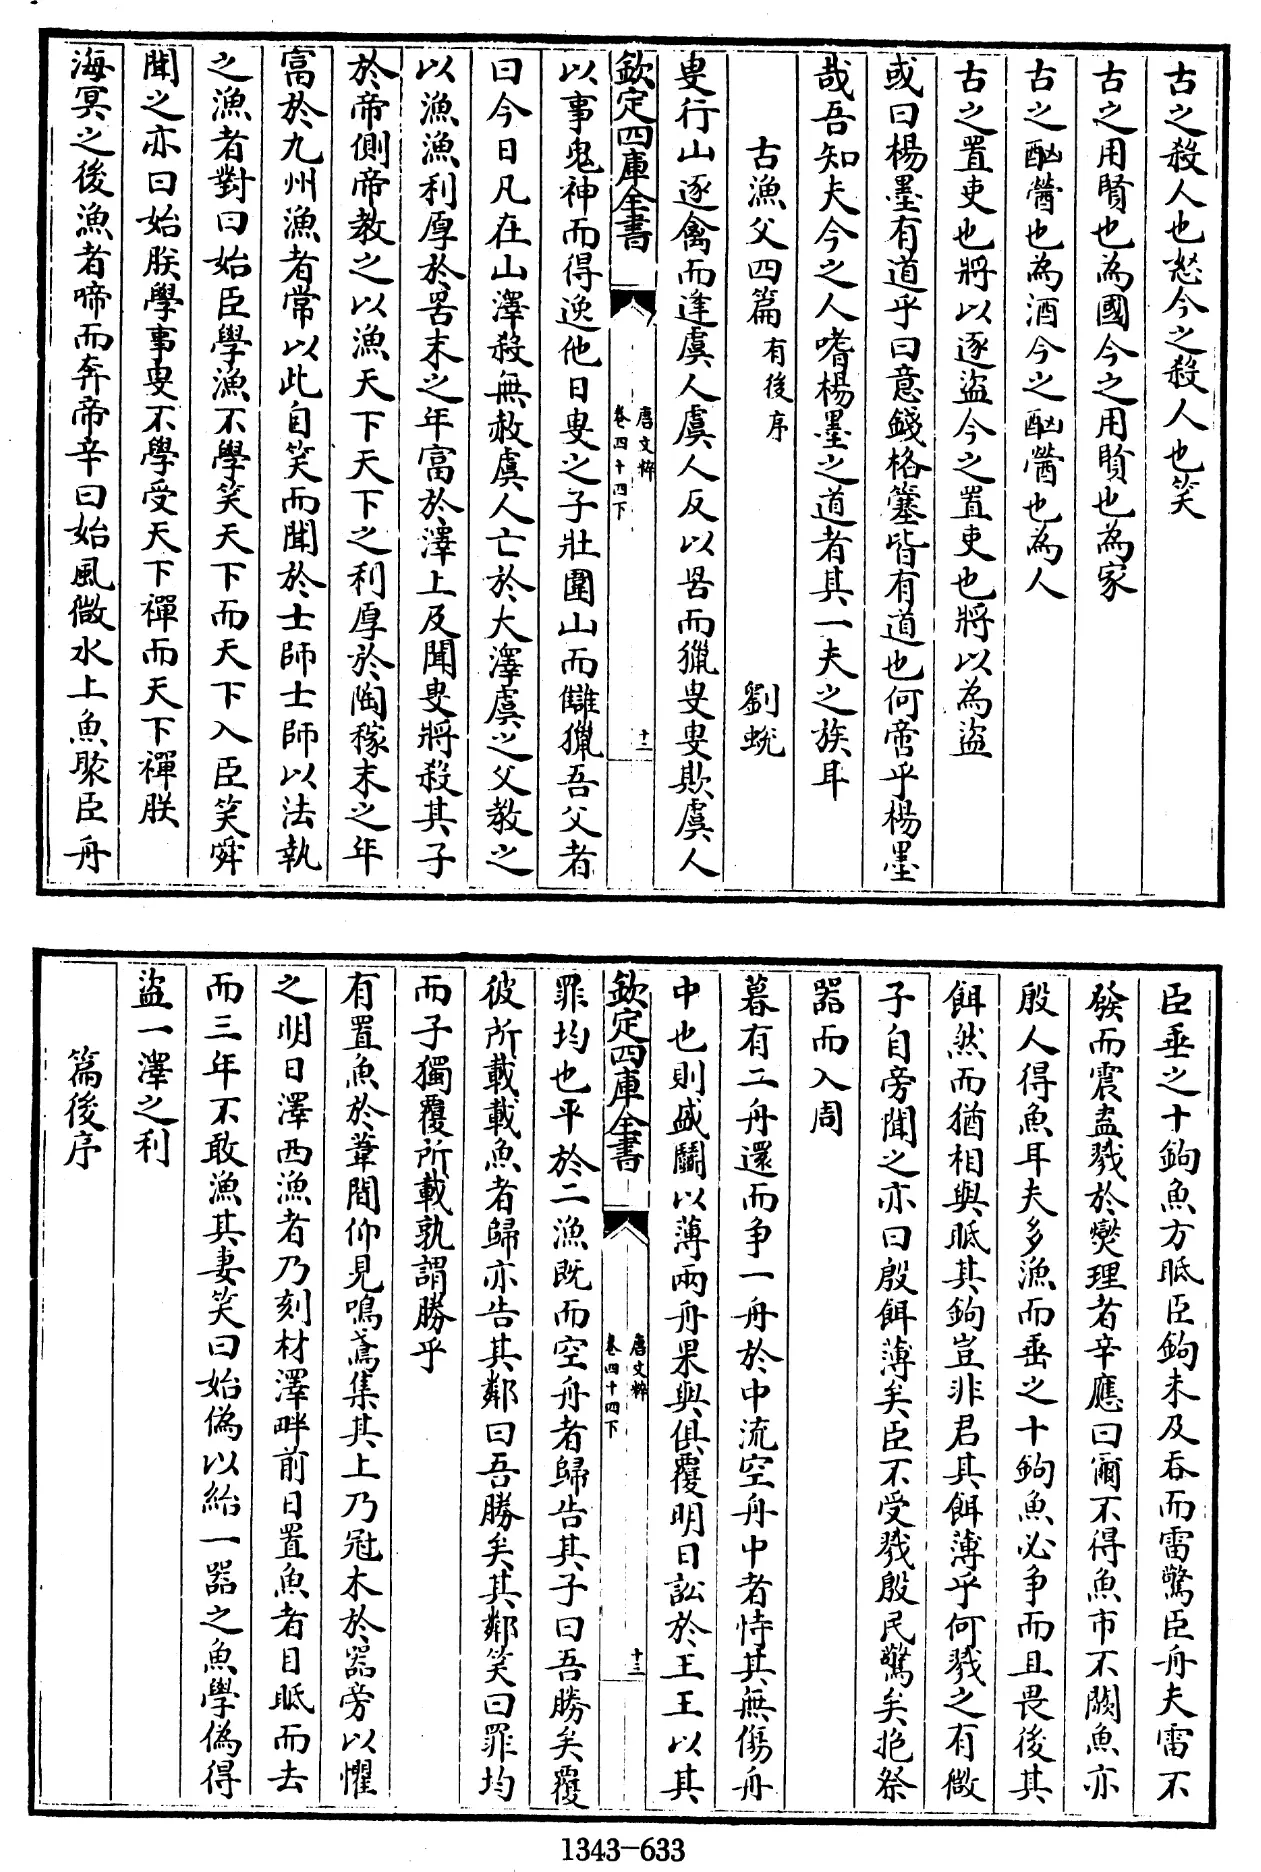 古之殺人也怒今之殺人也笑
古之用賢也為國今之用賢也為家
古之酗醟也為酒今之酗醟也為人
古之置吏也將以逐盜今之置吏也將以為盜
或曰楊墨有道乎曰意錢格簺皆有道也何啻乎楊墨
哉吾知夫今之人嗜楊墨之道者其一夫之族耳
古漁父四篇有後序 劉蛻
叟行山逐禽而逢虞人虞人反以罟而獵叟叟欺虞人
欽定四庫全書 唐文粹 卷四十四下 十二
以事鬼神而得逸他日叟之子壯圍山而讎獵吾父者
曰今日凡在山澤殺無赦虞人亡於大澤虞之父教之
以漁漁利厚於罟末之年富於澤上及聞叟將殺其子
於帝側帝教之以漁天下天下之利厚於陶稼末之年
富於九州漁者常以此自笑而聞於士師士師以法執
之漁者對曰始臣學漁不學笑天下而天下入臣笑舜
聞之亦曰始朕學事叟不學受天下禪而天下禪朕
海冥之後漁者啼而奔帝辛曰始風微水上魚聚臣舟
臣垂之十鉤魚方眡臣鉤未及吞而雷驚臣舟夫雷不
發而震盍戮於燮理者辛應曰爾不得魚市不闕魚亦
殷人得魚耳夫多漁而垂之十鉤魚必爭而且畏後其
餌然而猶相與眡其鉤豈非君其餌薄乎何戮之有微
子自旁聞之亦曰殷餌薄矣臣不受戮殷民驚矣抱祭
器而入周
暮有二舟還而爭一舟於中流空舟中者恃其無傷舟
中也則盛鬭以薄兩舟果與俱覆明日訟於王王以其
欽定四庫全書 唐文粹 卷四十四下 十三
罪均也平於二漁既而空舟者歸告其子曰吾勝矣覆
彼所載載魚者歸亦告其鄰曰吾勝矣其鄰笑曰罪均
而子獨覆所載孰謂勝乎
有置魚於葦間仰見鳴鳶集其上乃冠木於器旁以懼
之明日澤西漁者乃刻材澤畔前日置魚者目眡而去
而三年不敢漁其妻笑曰始偽以紿一器之魚學偽得
盜一澤之利
篇後序
1343-633